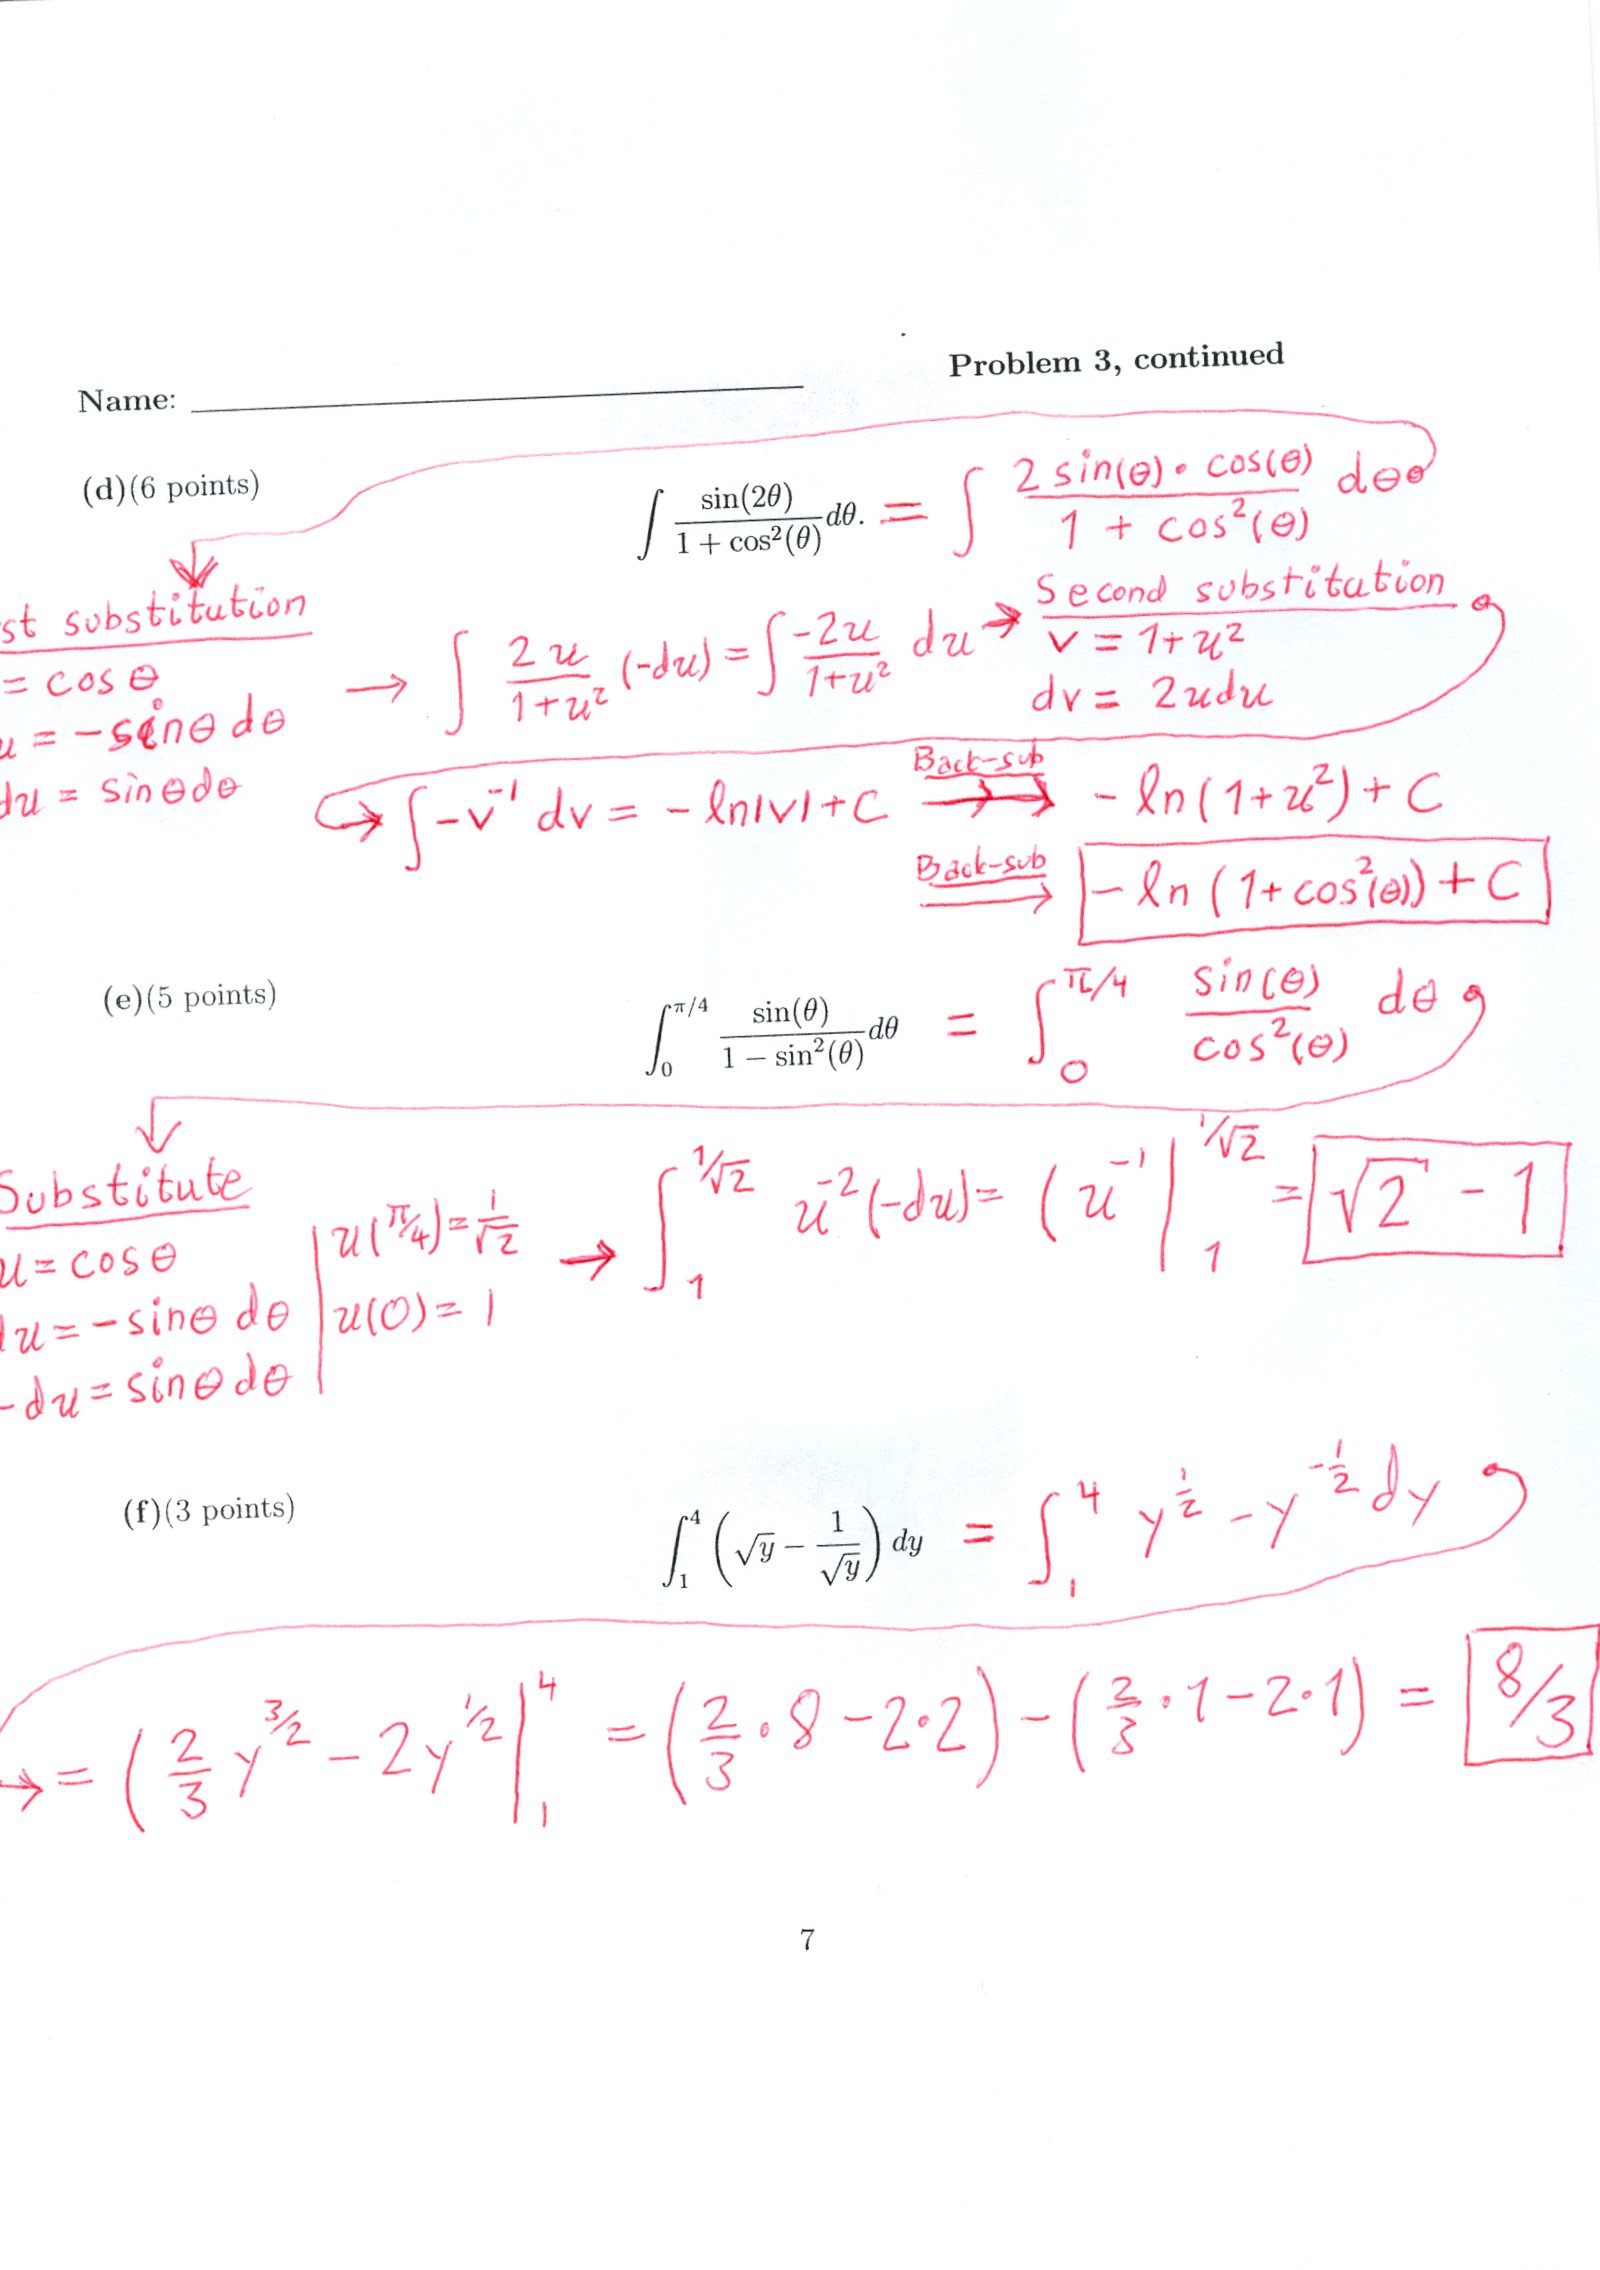 Problem 3, continued
Name:
(d)(6 points)
∫ sin(2θ)/(1 + cos²(θ)) dθ. = ∫ 2 sin(θ) · cos(θ)/(1 + cos²(θ)) dθ
st substitution
= cos θ
u = -sinθ dθ
du = sinθdθ
→ ∫ 2u/(1+u²) (-du) = ∫ -2u/(1+u²) du →
Second substitution
v = 1+u²
dv = 2udu
→ ∫ -v⁻¹ dv = - ln|v| + C Back-sub → - ln(1+u²) + C
Back-sub → - ln(1+cos²(θ)) + C
(e)(5 points)
∫₀^(π/4) sin(θ)/(1 − sin²(θ)) dθ = ∫₀^(π/4) sin(θ)/cos²(θ) dθ
Substitute
u = cos θ
du = -sinθ dθ
-du = sinθ dθ
u(π/4) = 1/√2
u(0) = 1
→ ∫₁^(1/√2) u⁻² (-du) = (u⁻¹ |₁^(1/√2) = √2 - 1
(f)(3 points)
∫₁⁴ (√y − 1/√y) dy = ∫₁⁴ y^(1/2) - y^(-1/2) dy
→ = (2/3 y^(3/2) - 2y^(1/2) |₁⁴ = (2/3 · 8 - 2·2) - (2/3 · 1 - 2·1) = 8/3
7